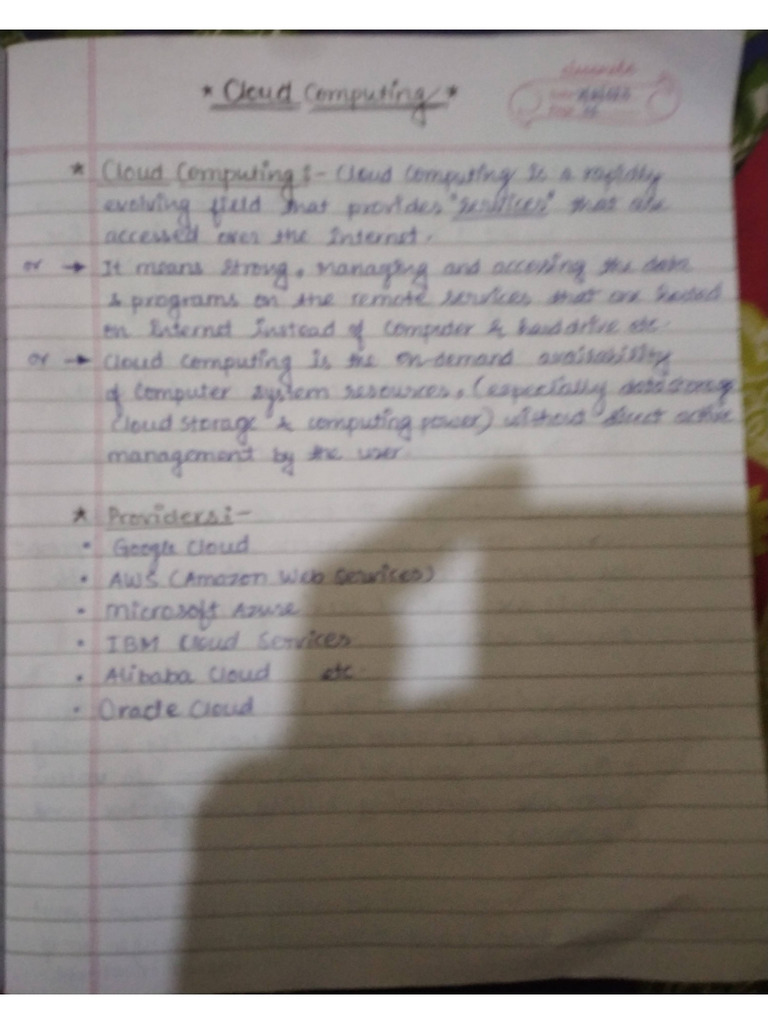 * Cloud Computing *
* Cloud Computing :- Cloud Computing is a rapidly
evolving field that provides "Services" that are
accessed over the Internet.
or → It means Strong, managing and accessing the data
& programs on the remote services that are hosted
on Internet Instead of Computer & hard drive etc.
or → Cloud Computing is the on-demand availability
of Computer System resources, (especially data storage
Cloud Storage & computing power) without direct active
management by the user.
* Providers:-
• Google Cloud
• AWS (Amazon Web Services)
• Microsoft Azure
• IBM Cloud Services
• Alibaba Cloud etc.
• Oracle Cloud